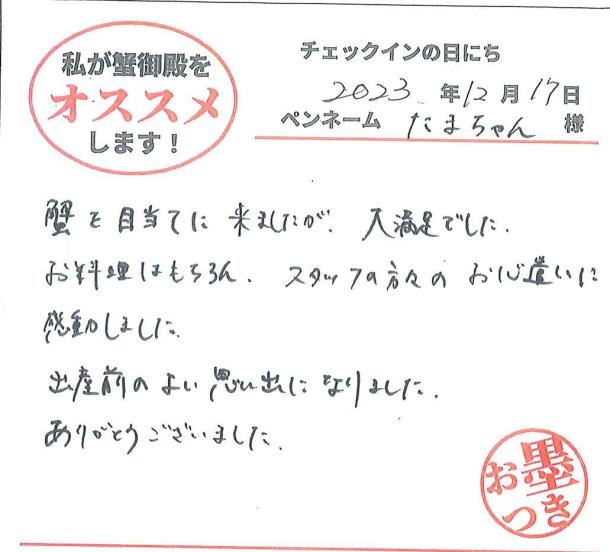 私が蟹御殿を
オススメ
します！
チェックインの日にち
2023 年12月17日
ペンネーム たまちゃん 様
蟹を目当てに来ましたが、大満足でした。
お料理はもちろん、スタッフの方々のお心遣いに
感動しました。
出産前のよい思い出になりました。
ありがとうございました。
お墨
つき